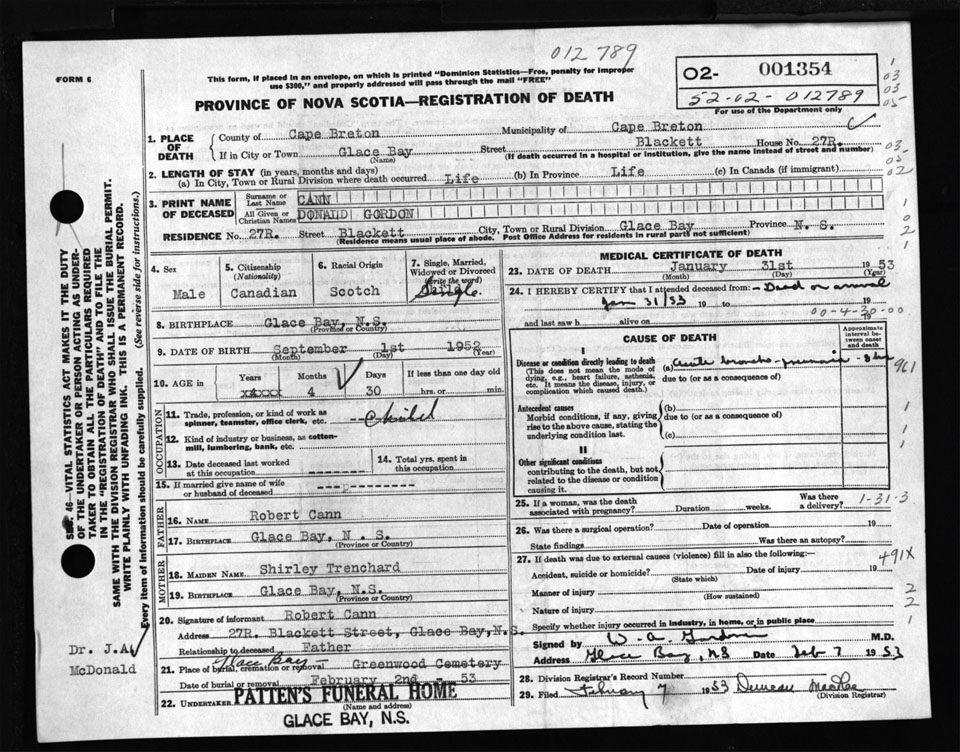 012 789
FORM 6
This form, if placed in an envelope, on which is printed "Dominion Statistics—Free, penalty for improper
use $300," and properly addressed will pass through the mail "FREE"
O2- 001354
52-02-012789
For use of the Department only
PROVINCE OF NOVA SCOTIA—REGISTRATION OF DEATH
1. PLACE OF DEATH
County of Cape Breton Municipality of Cape Breton
If in City or Town Glace Bay Street Blackett House No. 27R.
(Name) (If death occurred in a hospital or institution, give the name instead of street and number)
2. LENGTH OF STAY (in years, months and days)
(a) In City, Town or Rural Division where death occurred Life (b) In Province Life (c) In Canada (if immigrant)
3. PRINT NAME OF DECEASED
Surname or Last Name CANN
All Given or Christian Names DONALD GORDON
RESIDENCE No. 27R. Street Blackett City, Town or Rural Division Glace Bay Province N. S.
(Residence means usual place of abode. Post Office Address for residents in rural parts not sufficient)
4. Sex Male
5. Citizenship (Nationality) Canadian
6. Racial Origin Scotch
7. Single, Married, Widowed or Divorced (Write the word) Single.
8. BIRTHPLACE Glace Bay, N.S.
(Province or Country)
9. DATE OF BIRTH September 1st 1952
(Month) (Day) (Year)
10. AGE in Years Months Days If less than one day old
xxxxx 4 30 hrs. or min.
OCCUPATION
11. Trade, profession, or kind of work as
spinner, teamster, office clerk, etc.
12. Kind of industry or business, as cotton-
mill, lumbering, bank, etc.
13. Date deceased last worked
at this occupation
14. Total yrs. spent in
this occupation
15. If married give name of wife
or husband of deceased
FATHER
16. NAME Robert Cann
17. BIRTHPLACE Glace Bay, N . S.
(Province or Country)
MOTHER
18. MAIDEN NAME Shirley Trenchard
19. BIRTHPLACE Glace Bay, N.S.
(Province or Country)
20. Signature of informant Robert Cann
Address 27R. Blackett Street, Glace Bay, N.S.
Relationship to deceased Father
21. Place of burial, cremation or removal Glace Bay Greenwood Cemetery
Date of burial or removal February 2nd - 53
22. UNDERTAKER PATTEN'S FUNERAL HOME
(Name and address)
GLACE BAY, N.S.
MEDICAL CERTIFICATE OF DEATH
23. DATE OF DEATH January 31st 1953
(Month) (Day) (Year)
24. I HEREBY CERTIFY that I attended deceased from: - Dead on arrival
Jan 31/53 19 to 19
00-4-30-00
and last saw h alive on 19
CAUSE OF DEATH
Approximate interval between onset and death
I
Disease or condition directly leading to death
(This does not mean the mode of dying, e.g., heart failure, asthenia, etc. It means the disease, injury, or complication which caused death.)
(a) Acute broncho-pneumonia
due to (or as a consequence of)
961
Antecedent causes
Morbid conditions, if any, giving rise to the above cause, stating the underlying condition last.
(b)
due to (or as a consequence of)
(c)
II
Other significant conditions
contributing to the death, but not related to the disease or condition causing it.
25. If a woman, was the death
associated with pregnancy? Duration weeks. Was there a delivery?
1-31-3
26. Was there a surgical operation? Date of operation 19
State findings Was there an autopsy?
27. If death was due to external causes (violence) fill in also the following:—
491X
Accident, suicide or homicide? Date of injury 19
(State which)
Manner of injury
(How sustained)
Nature of injury
Specify whether injury occurred in industry, in home, or in public place
Signed by W. A. Gordon M.D.
Address Glace Bay, NS Date Feb 7 1953
28. Division Registrar's Record Number
29. Filed February 7 1953 Duncan MacRae
(Division Registrar)
SEC. 46—VITAL STATISTICS ACT MAKES IT THE DUTY
OF THE UNDERTAKER OR PERSON ACTING AS UNDER-
TAKER TO OBTAIN ALL THE PARTICULARS REQUIRED
IN THE "REGISTRATION OF DEATH" AND TO FILE THE
SAME WITH THE DIVISION REGISTRAR WHO SHALL ISSUE THE BURIAL PERMIT.
WRITE PLAINLY WITH UNFADING INK. THIS IS A PERMANENT RECORD.
Every item of information should be carefully supplied. (See reverse side for instructions.)
Dr. J.A.
McDonald